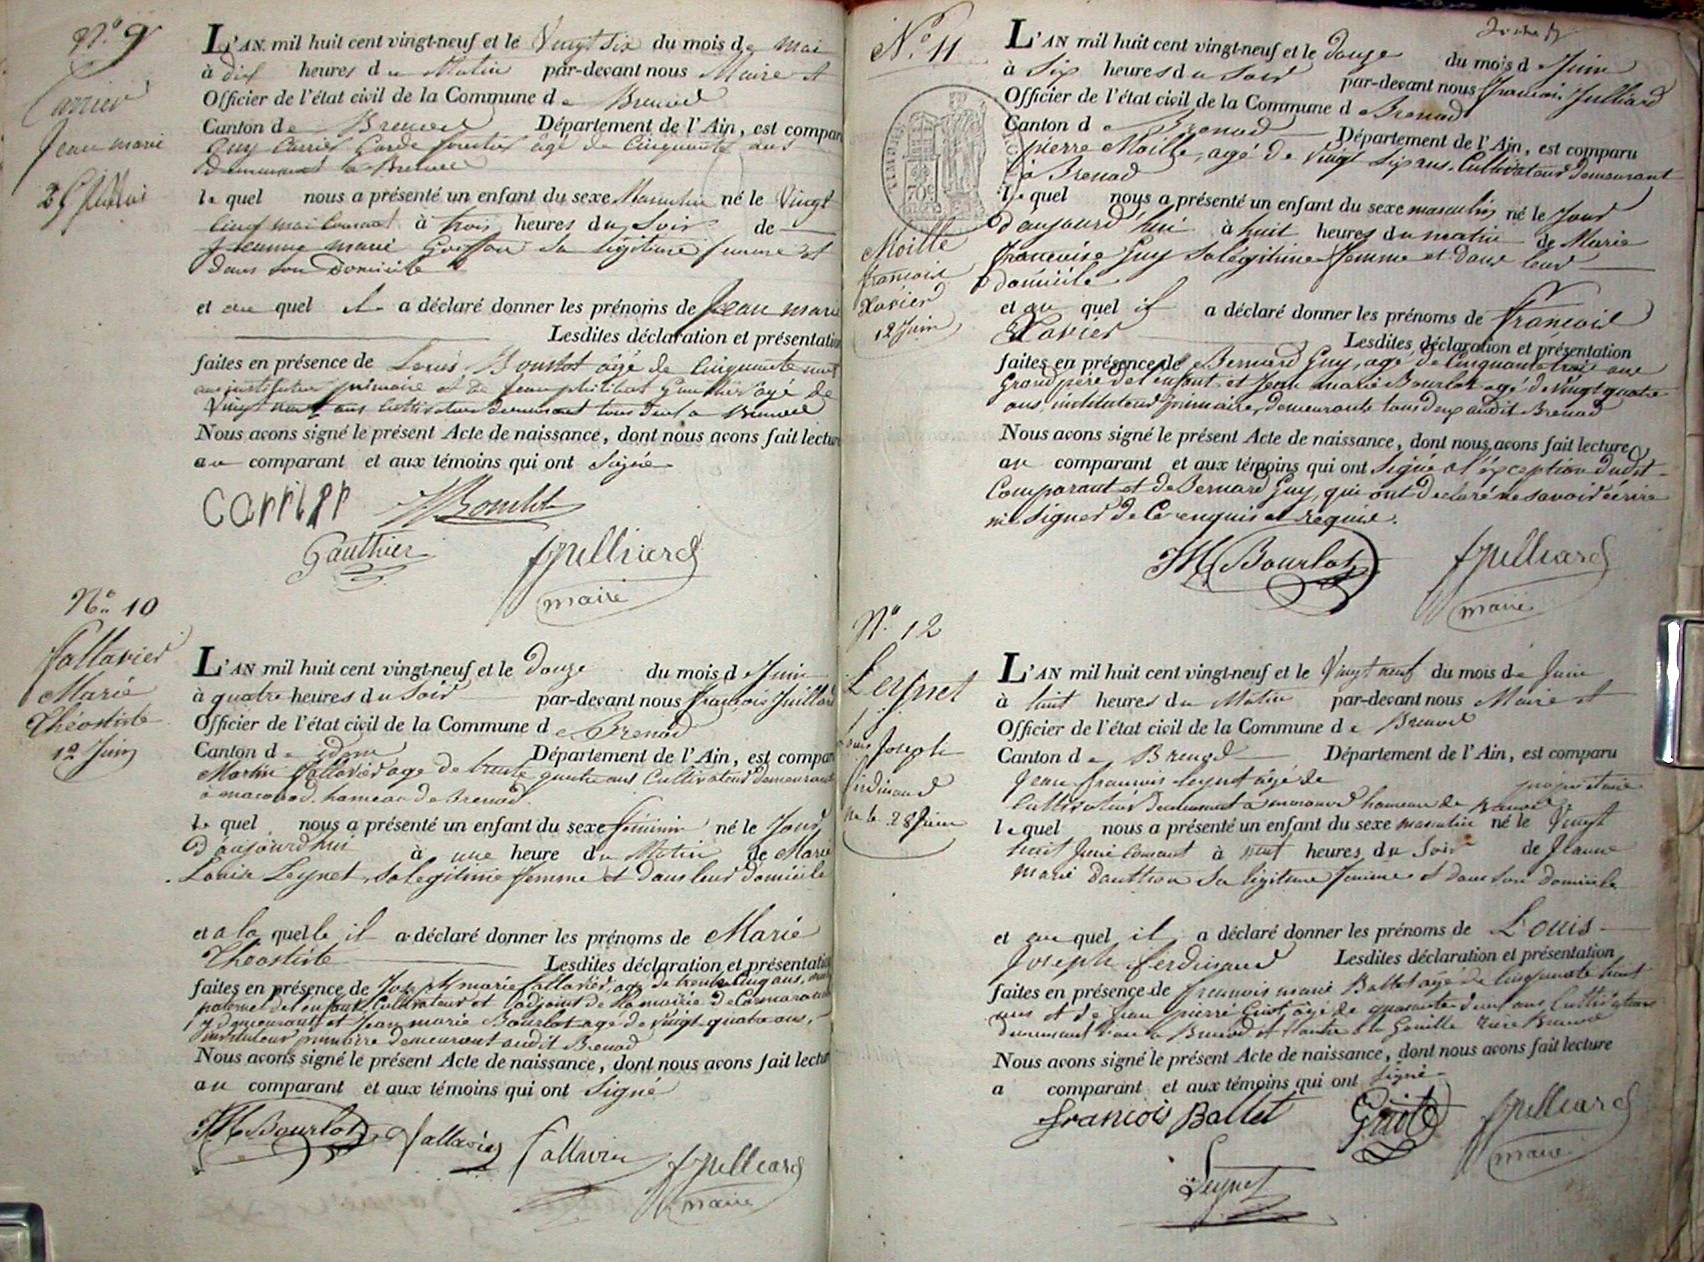 N.° 9
Carrier
Jean marie
25 mai
L'AN mil huit cent vingt-neuf et le Vingt six du mois de mai
à dix heures du Matin par-devant nous Maire et
Officier de l'état civil de la Commune de Brenod
Canton de Brenod Département de l'Ain, est comparu
Guy Carrier Garde forestier agé de Cinquante ans
demeurant à Brenod
le quel nous a présenté un enfant du sexe Masculin né le Vingt
Cinq mai Courant à trois heures du Soir de
Jeanne marie sa légitime femme et
dans son Domicile
et au quel il a déclaré donner les prénoms de Jean marie
Lesdites déclaration et présentation
faites en présence de Louis Bourlot âgé de Cinquante neuf
ans instituteur primaire et de Jean philibert Gauthier âgé de
Vingt neuf ans cultivateur demeurant tous deux à Brenod
Nous avons signé le présent Acte de naissance, dont nous avons fait lecture
au comparant et aux témoins qui ont Signé
Carrier Bourlot
Gauthier fJulliard
maire
N.° 10
Fallavier
Marie
Théostiste
12 Juin
L'AN mil huit cent vingt-neuf et le douze du mois de Juin
à quatre heures du Soir par-devant nous françois Juilliard
Officier de l'état civil de la Commune de Brenod
Canton de idem Département de l'Ain, est comparu
Martin fallavier age de trente quatre ans Cultivateur demeurant
à macconod hameau de Brenod.
le quel nous a présenté un enfant du sexe féminin né le Jour
d'aujourd'hui à une heure du Matin de Marie
Louise Leynet, sa legitime femme et dans leur domicile
et a la quelle il a déclaré donner les prénoms de Marie
Théostiste Lesdites déclaration et présentation
faites en présence de Joseph marie fallavier, age de trente cinq ans,
paternel de l'enfant, Cultivateur et adjoint de la mairie de
y demeurant et Jean marie Bourlot agé de Vingt quatre ans,
instituteur primaire demeurant audit Brenod
Nous avons signé le présent Acte de naissance, dont nous avons fait lecture
au comparant et aux témoins qui ont Signé
JM Bourlot fallavier fallavier fJulliard
maire
N.° 11
Moille
françois
Xavier
12 Juin
L'AN mil huit cent vingt-neuf et le douze du mois de Juin
à Six heures du Soir par-devant nous françois Julliard
Officier de l'état civil de la Commune de Brenod
Canton de Brenod Département de l'Ain, est comparu
pierre Moille, agé de Vingt Six ans, Cultivateur demeurant
à Brenod
le quel nous a présenté un enfant du sexe masculin né le Jour
d'aujourd'hui à huit heures du matin de Marie
francoise Guy sa legitime femme et dans leur
domicile
et au quel il a déclaré donner les prénoms de françois
Xavier Lesdites déclaration et présentation
faites en présence de Bernard Guy, agé de Cinquante trois ans
Grand pere de l'enfant, et Jean marie Bourlot agé de Vingt quatre
ans, instituteur primaire, demeurants tous deux audit Brenod
Nous avons signé le présent Acte de naissance, dont nous avons fait lecture
au comparant et aux témoins qui ont Signé a l'éxception dudit
Comparant et de Bernard Guy, qui ont declaré ne savoir écrire
ni Signer de Ce enquis et requis.
JM Bourlot fJulliard
maire
N.° 12
Leynet
Louis Joseph
ferdinand
né le 28 Juin
L'AN mil huit cent vingt-neuf et le Vingt neuf du mois de Juin
à huit heures du Matin par-devant nous Maire et
Officier de l'état civil de la Commune de Brenod
Canton de Brenod Département de l'Ain, est comparu
Jean francois Leynet âgé de propriétaire
Cultivateur demeurant à maconod hameau de Brenod
le quel nous a présenté un enfant du sexe masculin né le Vingt
huit Juin Courant à neuf heures du Soir de Jeanne
Marie sa légitime femme et dans son domicile
et au quel il a déclaré donner les prénoms de Louis
Joseph ferdinand Lesdites déclaration et présentation
faites en présence de francois marie Ballet âgé de Cinquante huit
ans et de Jean pierre Guiot âgé de quarante deux ans Cultivateurs
demeurant l'un à Brenod et l'autre à la Gouille Brenod
Nous avons signé le présent Acte de naissance, dont nous avons fait lecture
a comparant et aux témoins qui ont Signé
francois Ballet Guiot fJulliard
maire
Leynet